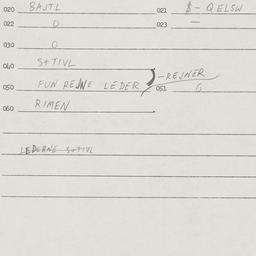 020 BAJTL 021 $- QELSW
022 D 023 —
030 O
040 S+TIVL
-REJNER
050 FUN REJNE LEDER 051 G
060 RIMEN
LEDERNE S+TIVL